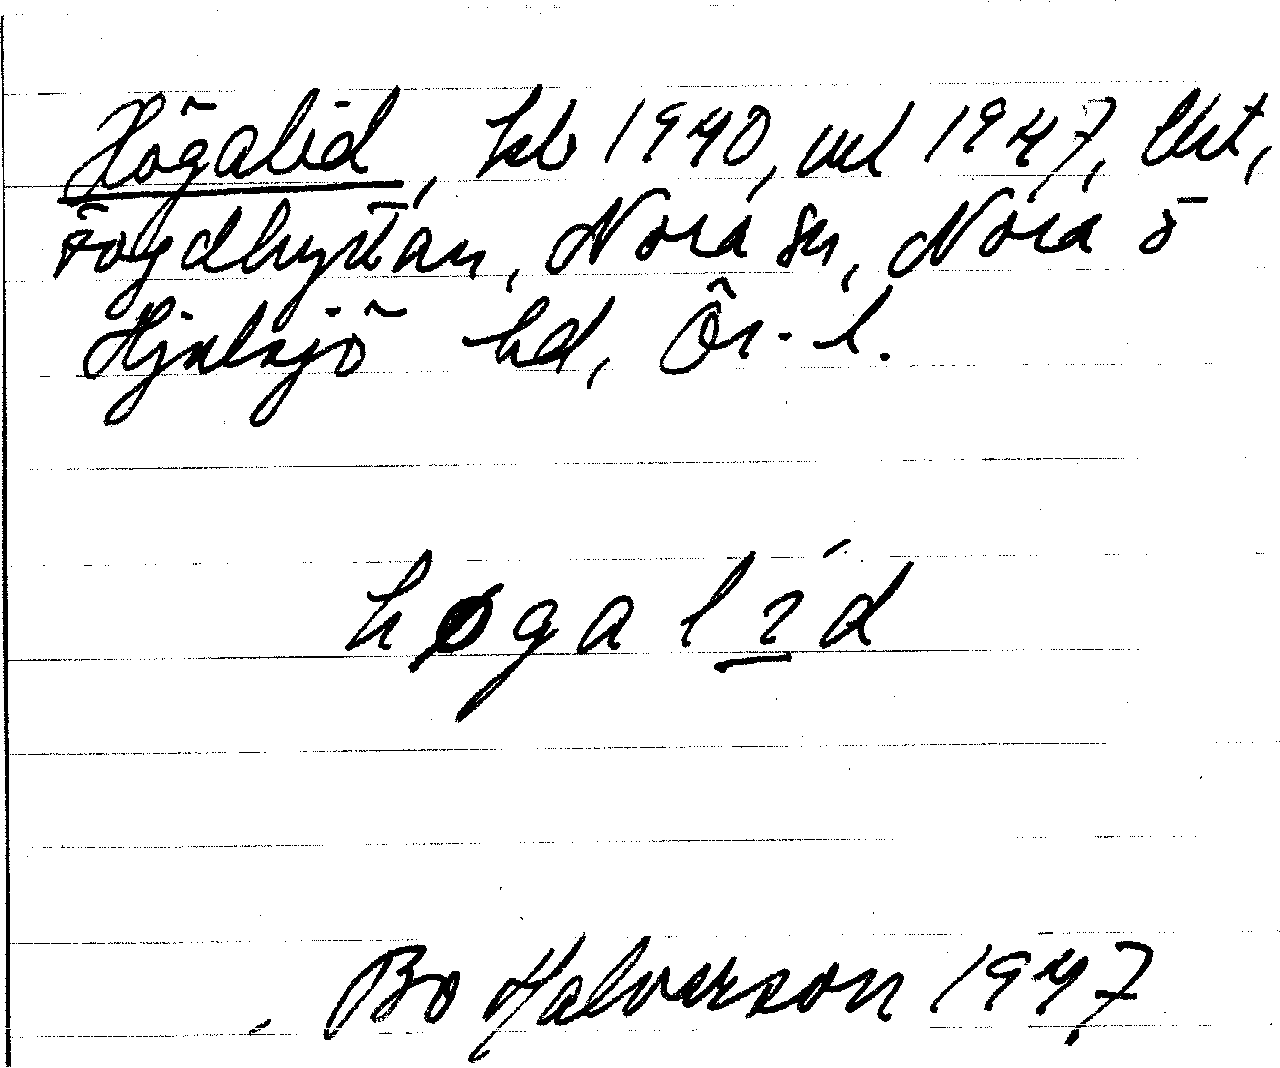 Högalid, kb 1940, ml 1947, lht,
Fogdhyttan, Nora sn, Nora o
Hjulsjö hd, Ör. l.
høgalid
Bo Halvarson 1947